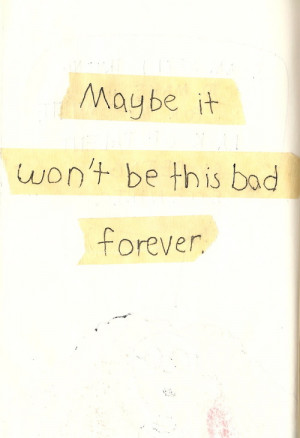 Maybe it
won't be this bad
forever.